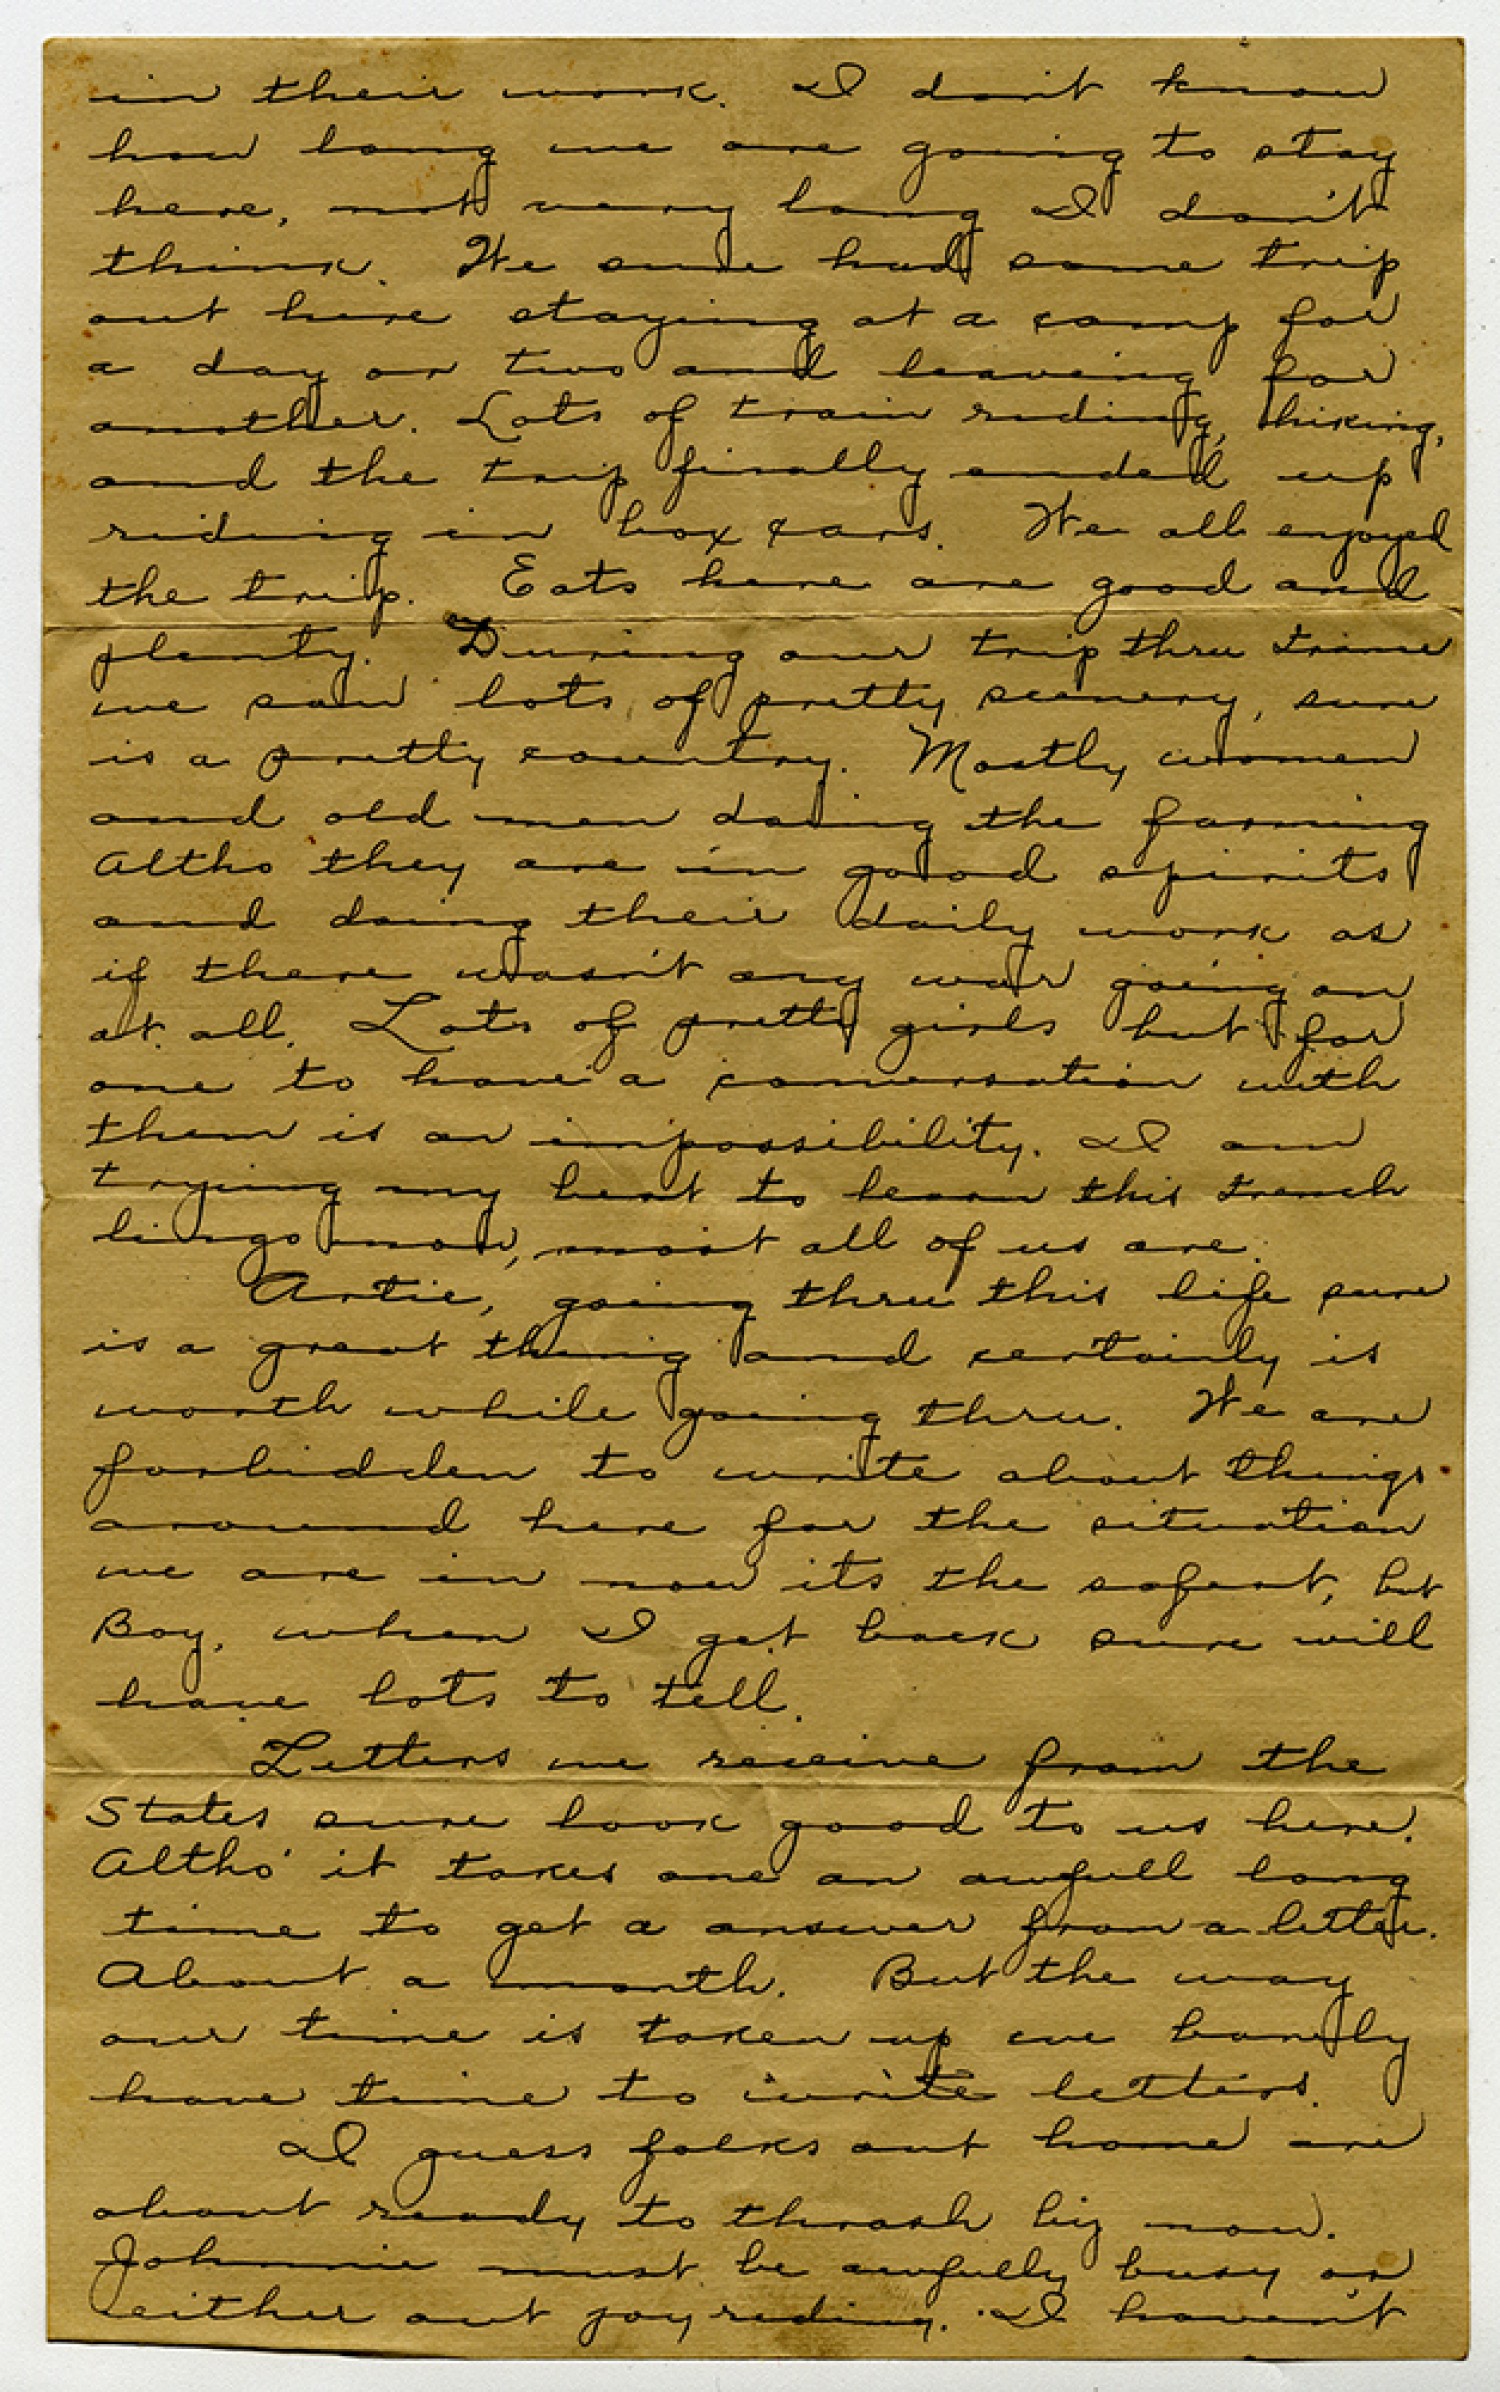 in their work. I don't know
how long we are going to stay
here, not very long I don't
think. We sure had some trip
out here staying at a camp for
a day or two and leaving for
another. Lots of train riding, hiking,
and the trip finally ended up
riding in box cars. We all enjoyed
the trip. Eats here are good and
plenty. During our trip thru France
we saw lots of pretty scenery, sure
is a pretty country. Mostly women
and old men doing the farming
Altho they are in good spirits
and doing their daily work as
if there wasn't any war going on
at all. Lots of pretty girls but for
one to have a conversation with
them is an impossibility. I am
trying my best to learn this French
lingo now, most all of us are.
Artie, going thru this life sure
is a great thing and certainly is
worth while going thru. We are
forbidden to write about things
around here for the situation
we are in now its the safest, but
Boy, when I get back sure will
have lots to tell.
Letters we receive from the
States sure look good to us here.
Altho it takes one an awfull long
time to get a answer from a letter.
About a month. But the way
our time is taken up we hardly
have time to write letters.
I guess folks out home are
about ready to thrash by now.
Johnnie must be awfully busy or
either out joy riding. I haven't